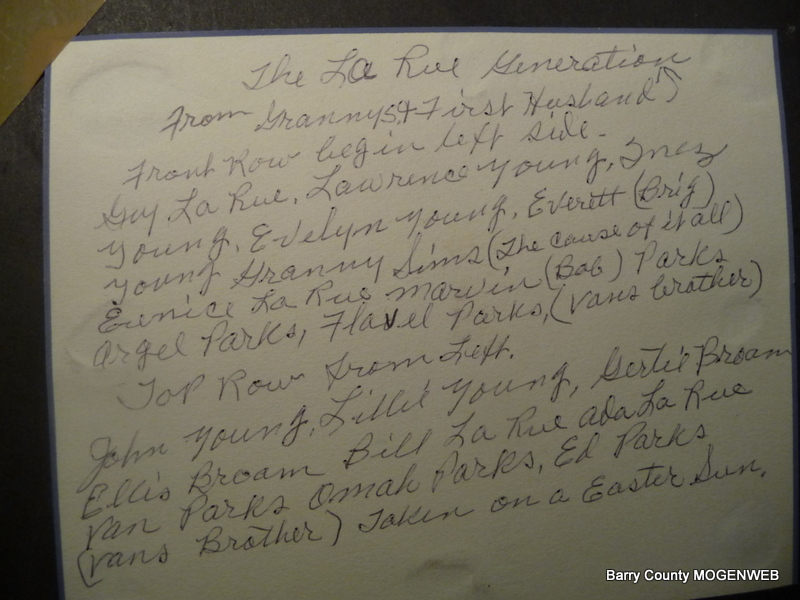 The La Rue Generation
From Granny's 1st First Husband
Front Row begin left side.
Guy La Rue, Lawrence Young, Inez
Young, Evelyn Young, Everett (Brig)
Young Granny Sims (The cause of it all)
Eunice La Rue Marvin (Bob) Parks
Argel Parks, Flavel Parks, (Vans brother)
Top Row from Left.
John Young, Lillie Young, Gertie Broam
Ellis Broam Bill La Rue Ada La Rue
Van Parks Omah Parks, Ed Parks
(Vans Brother) Taken on a Easter Sun.
Barry County MOGENWEB